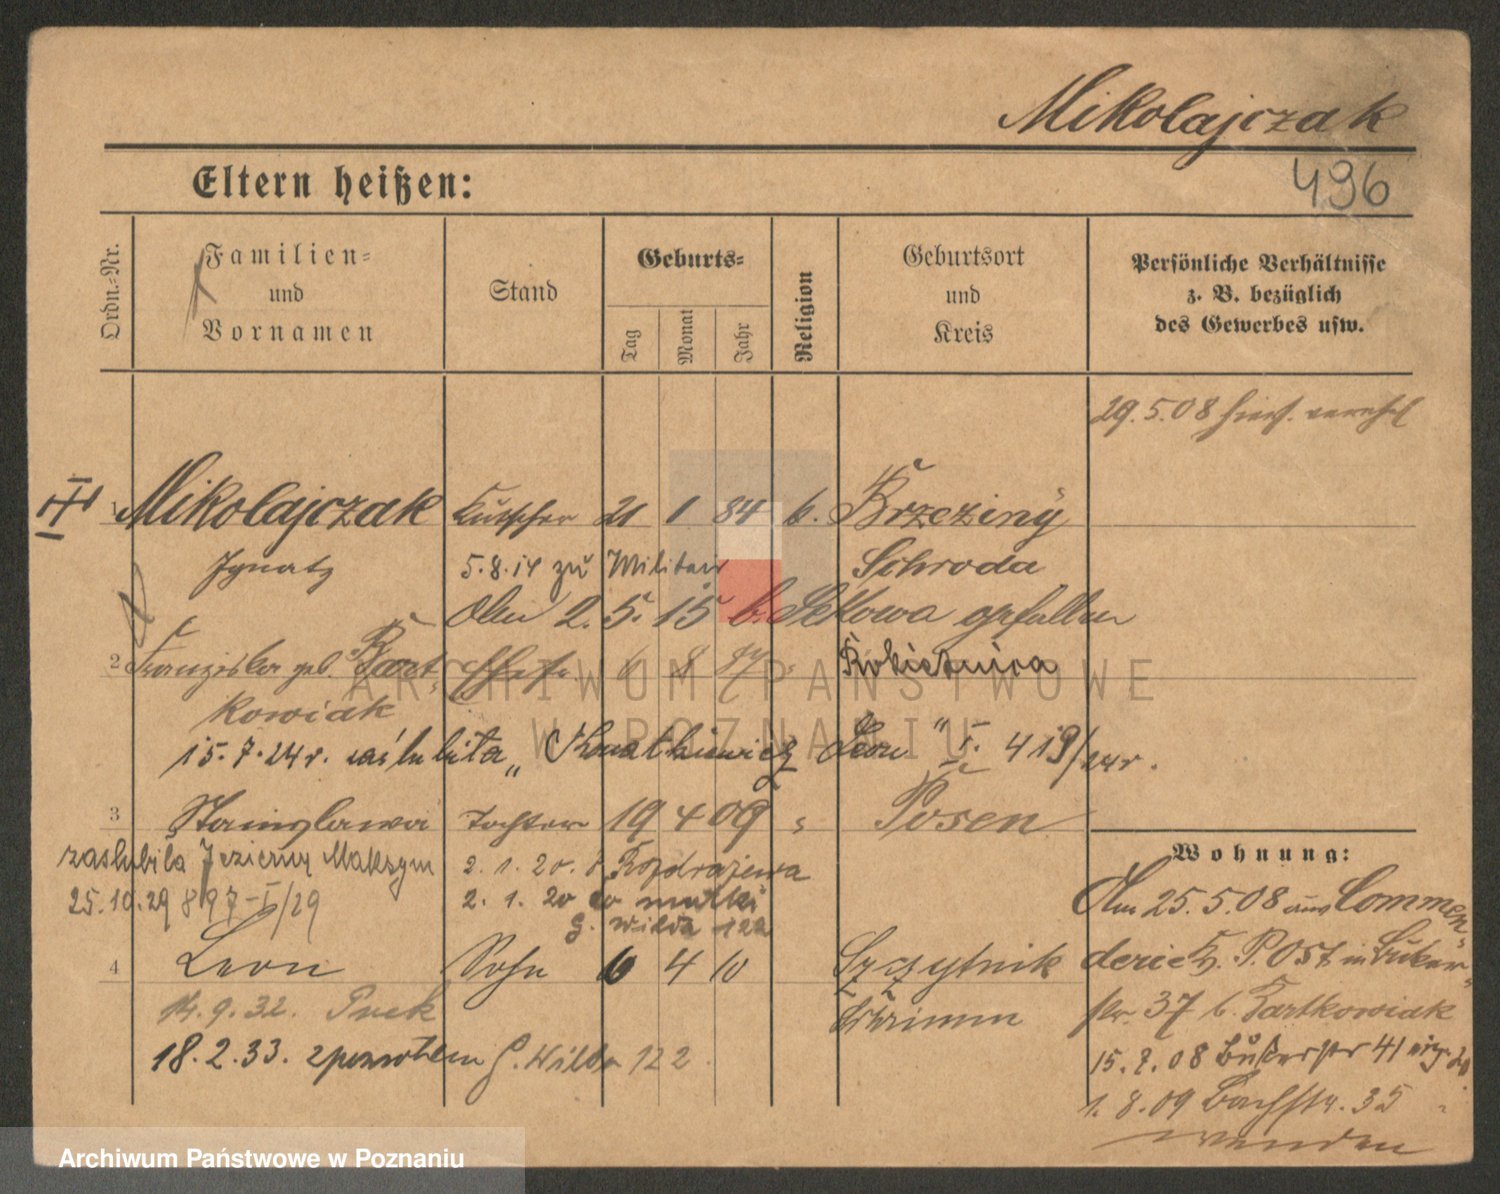 Mikolajczak
496
Eltern heißen:
Ordn.-Nr.
Familien-
und
Vornamen
Stand
Geburts-
Tag
Monat
Jahr
Religion
Geburtsort
und
Kreis
Persönliche Verhältnisse
z. B. bezüglich
des Gewerbes usw.
29.5.08
Mikolajczak Kutscher 21 1 84 k. Brzeziny
Ignatz 5.8.14 zu Militair Schroda
Am 2. 5. 15 b. gefallen
2 Franziska geb. Bart- Ehefr. 6 8 87 " Rokietnica
kowiak
15.7.24 r. zaślubiła „ Leon " I. 419/24 r.
3 Stanislawa Tochter 19 4 09 " Posen
Wohnung:
zaslubiła Jezierny Maksym 2. 1. 20.
25.10.29 897-I/29 2. 1. 20 do matki
G. Wilda 122
4 Leon Sohn 6 4 10 Szczytnik
Schrimm
14.9.32.
18.2.33. z powrotem G. Wilda 122
Am 25.5.08 aus Commen-
derie P. Ost in
37 b. Bartkowiak
15.7.08 41
1.8.09 Bachstr. 35
wenden
ARCHIWUM PAŃSTWOWE
W POZNANIU
Archiwum Państwowe w Poznaniu